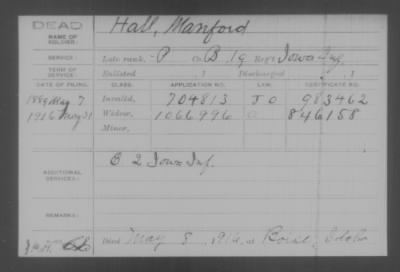 DEAD
NAME OF SOLDIER:
Hall, Manford
SERVICE:
Late rank, P Co. B, 19 Reg't Iowa Inf.
TERM OF SERVICE:
Enlisted , 1 Discharged , 1
DATE OF FILING. CLASS. APPLICATION NO. LAW. CERTIFICATE NO.
1889 May 7 Invalid, 704813 J O 983462
1916 May 31 Widow, 1066996 846158
Minor,
ADDITIONAL SERVICES:
B 2 Iowa Inf.
REMARKS:
Died May 8, 1916, at Boise, Idaho